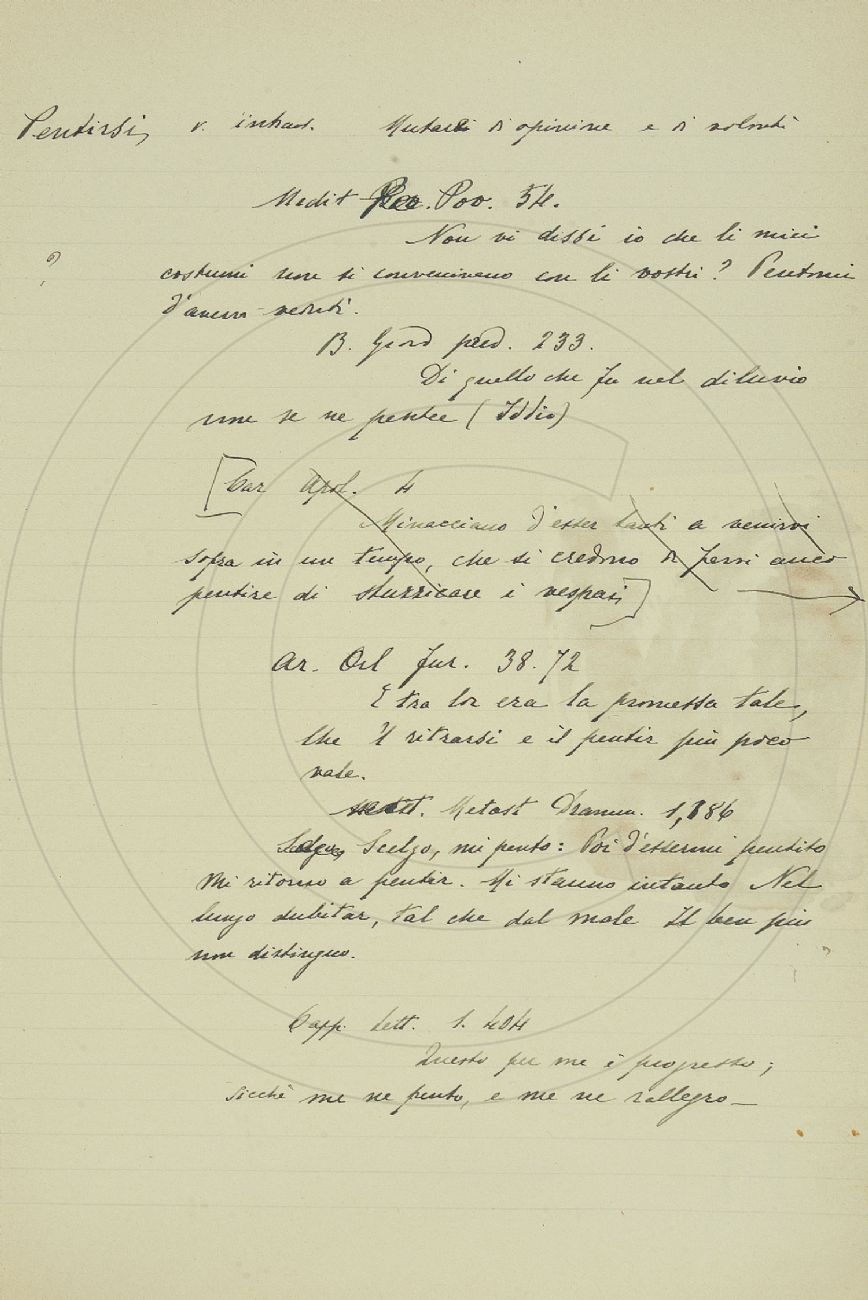 Pentirsi, v. intrans. Mutarsi di opinione e di volontà
Medit Pov. 54.
Non vi dissi io che li miei
? costumi non si convenivano con li vostri? Pentomi
d'avervi veduti.
B. Giord pred. 233.
Di quello che fu nel diluvio
non se ne pentee (Iddio)
[Car Apol. 4
Minacciano d'esser tanti a venirvi
sopra in un tempo, che si credono di farvi anco
pentire di stuzzicare i vespai]
Ar. Orl Fur. 38. 72
E tra lor era la promessa tale,
Che 'l ritrarsi e il pentir più poco
vale.
Metast Dramm. 1,186
Scelgo, mi pento: Poi d'essermi pentito
Mi ritorno a pentir. Mi stanno intanto Nel
lungo dubitar, tal che dal male Il ben più
non distinguo.
Capp. Lett. 1. 404
Questo per me è progresso;
sicchè me ne pento, e me ne rallegro_